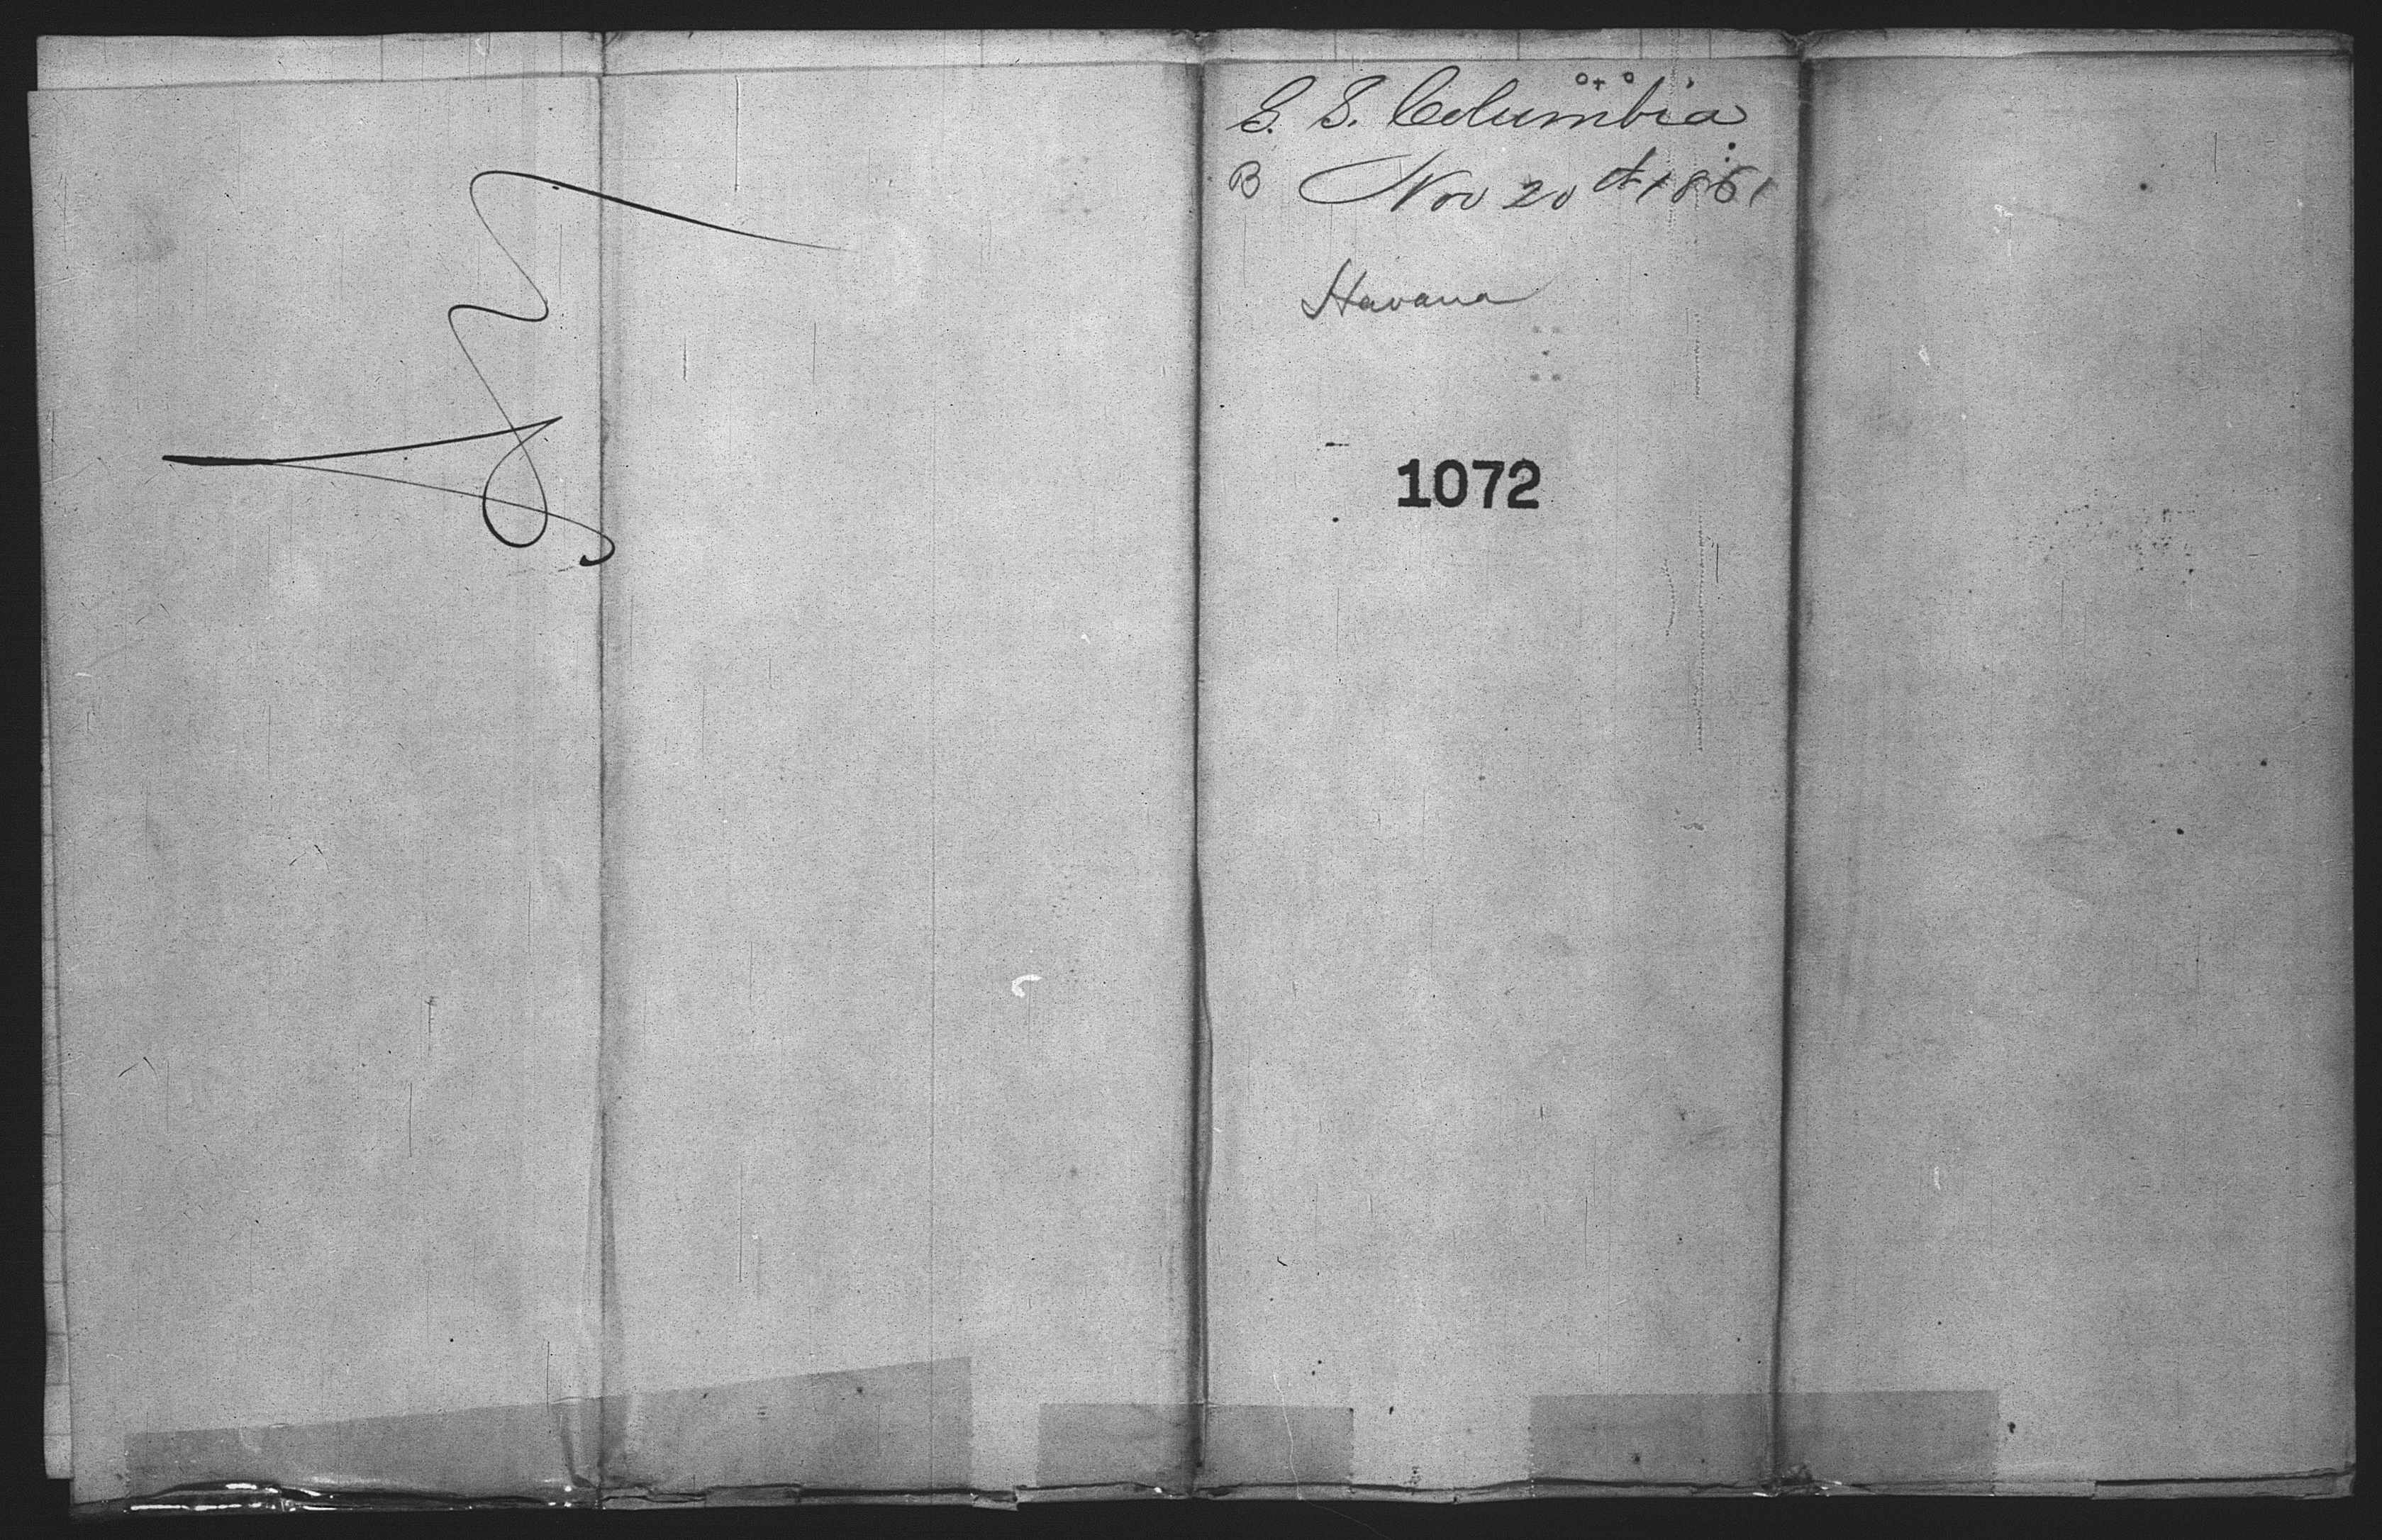 S. S. Columbia
B Nov 20th 1861
Havana
1072